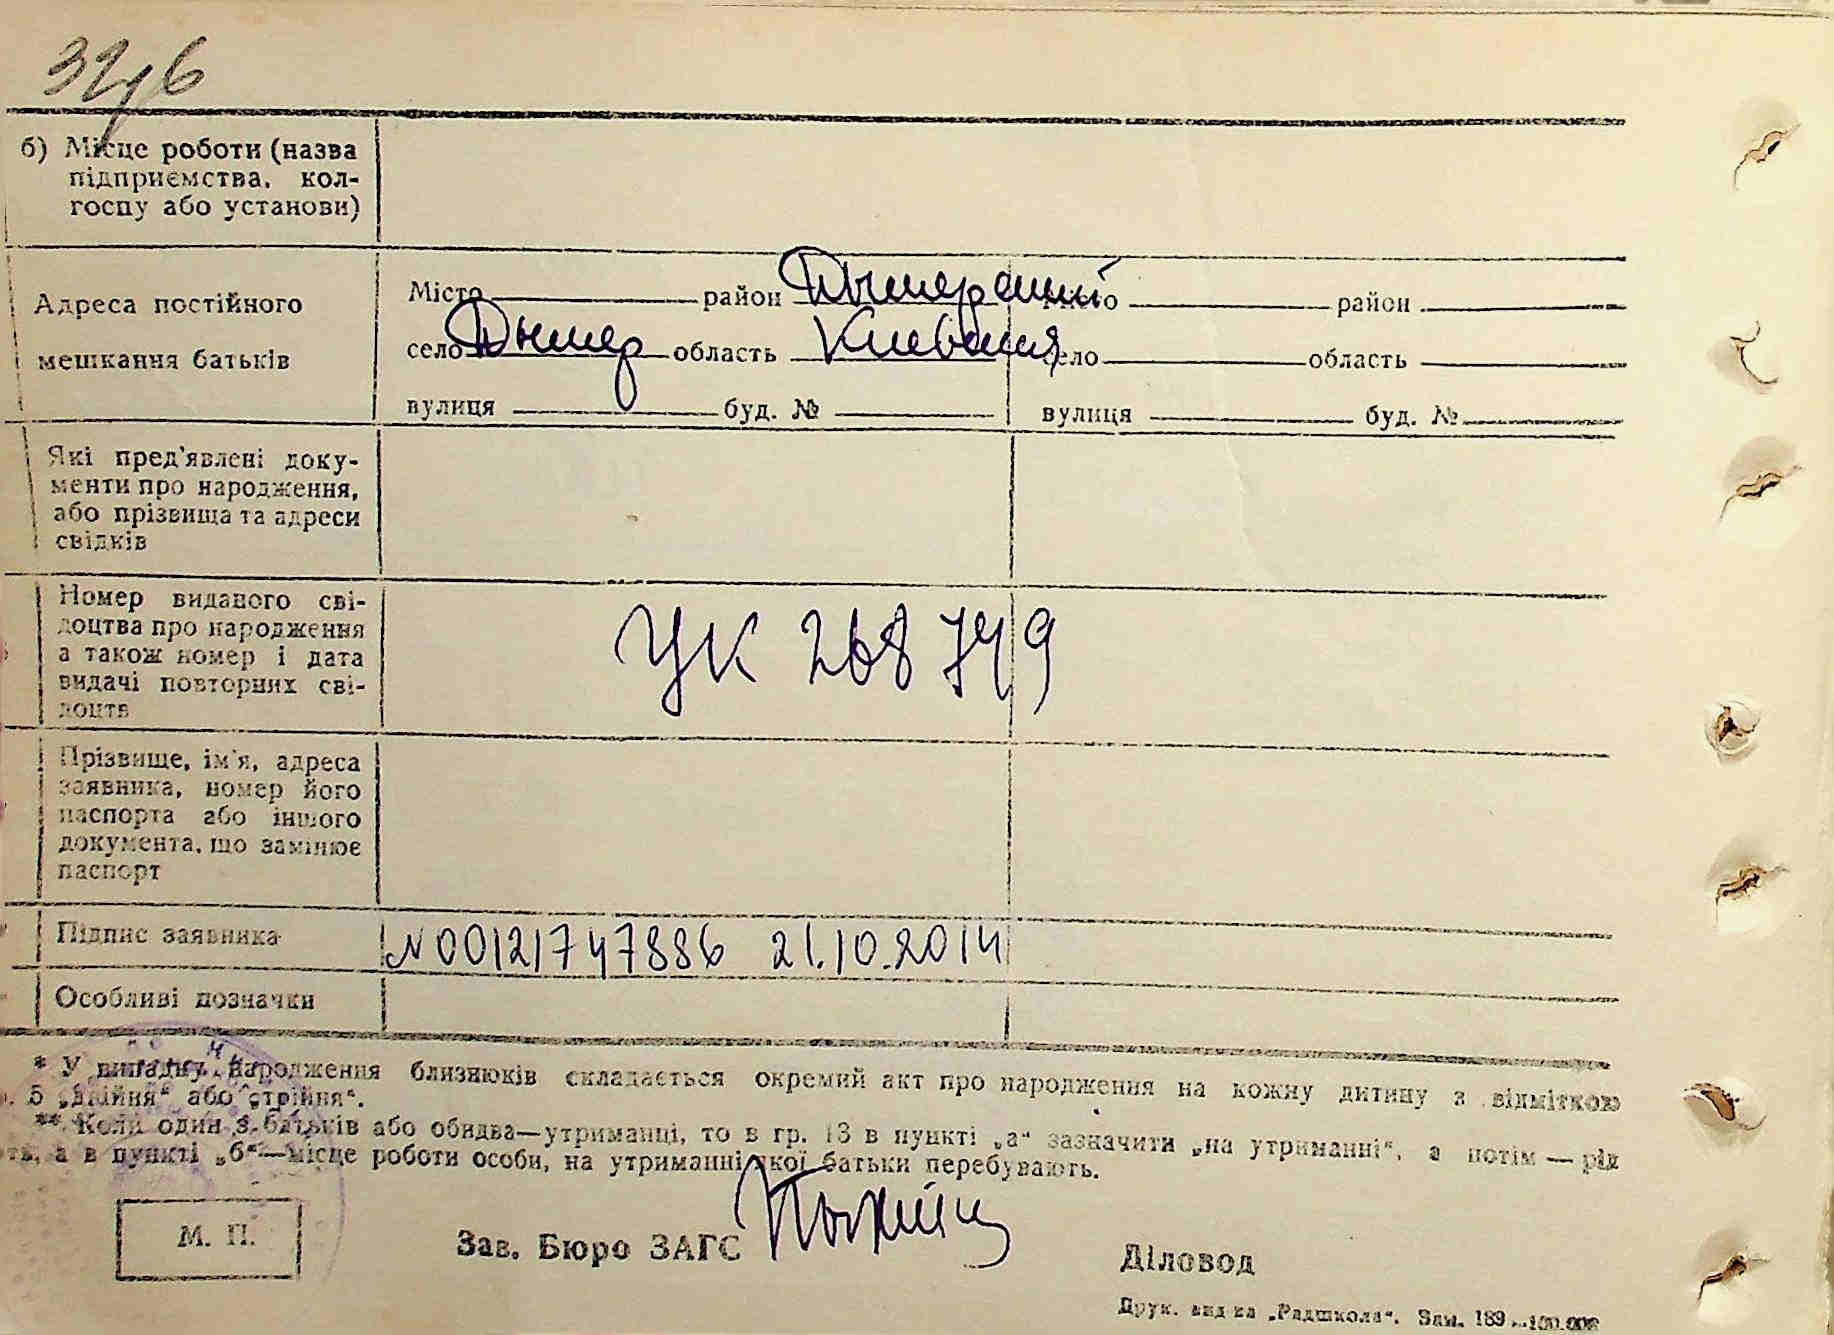 б) Місце роботи (назва
підприємства, кол-
госпу або установи)
Адреса постійного
мешкання батьків
Місто район Дымерский Місто район
село Дымер область Киевская село область
вулиця буд. № вулиця буд. №
Які пред'явлені доку-
менти про народження,
або прізвища та адреси
свідків
Номер виданого сві-
доцтва про народження
а також номер і дата
видачі повторних сві-
доцтв
УК 268749
Прізвище, ім'я, адреса
заявника, номер його
паспорта або іншого
документа, що замінює
паспорт
Підпис заявника
N00121747886 21.10.2014
Особливі позначки
* У випадку народження близнюків складається окремий акт про народження на кожну дитину з відміткою
5 „двійня“ або „трійня“.
** Коли один з батьків або обидва—утриманці, то в гр. 13 в пункті „а“ зазначити „на утриманні“, а потім — рід
а в пункті „б“—місце роботи особи, на утриманні якої батьки перебувають.
М. П.
Зав. Бюро ЗАГС
Діловод
Друк. вид-ва „Радшкола“. Зам. 189